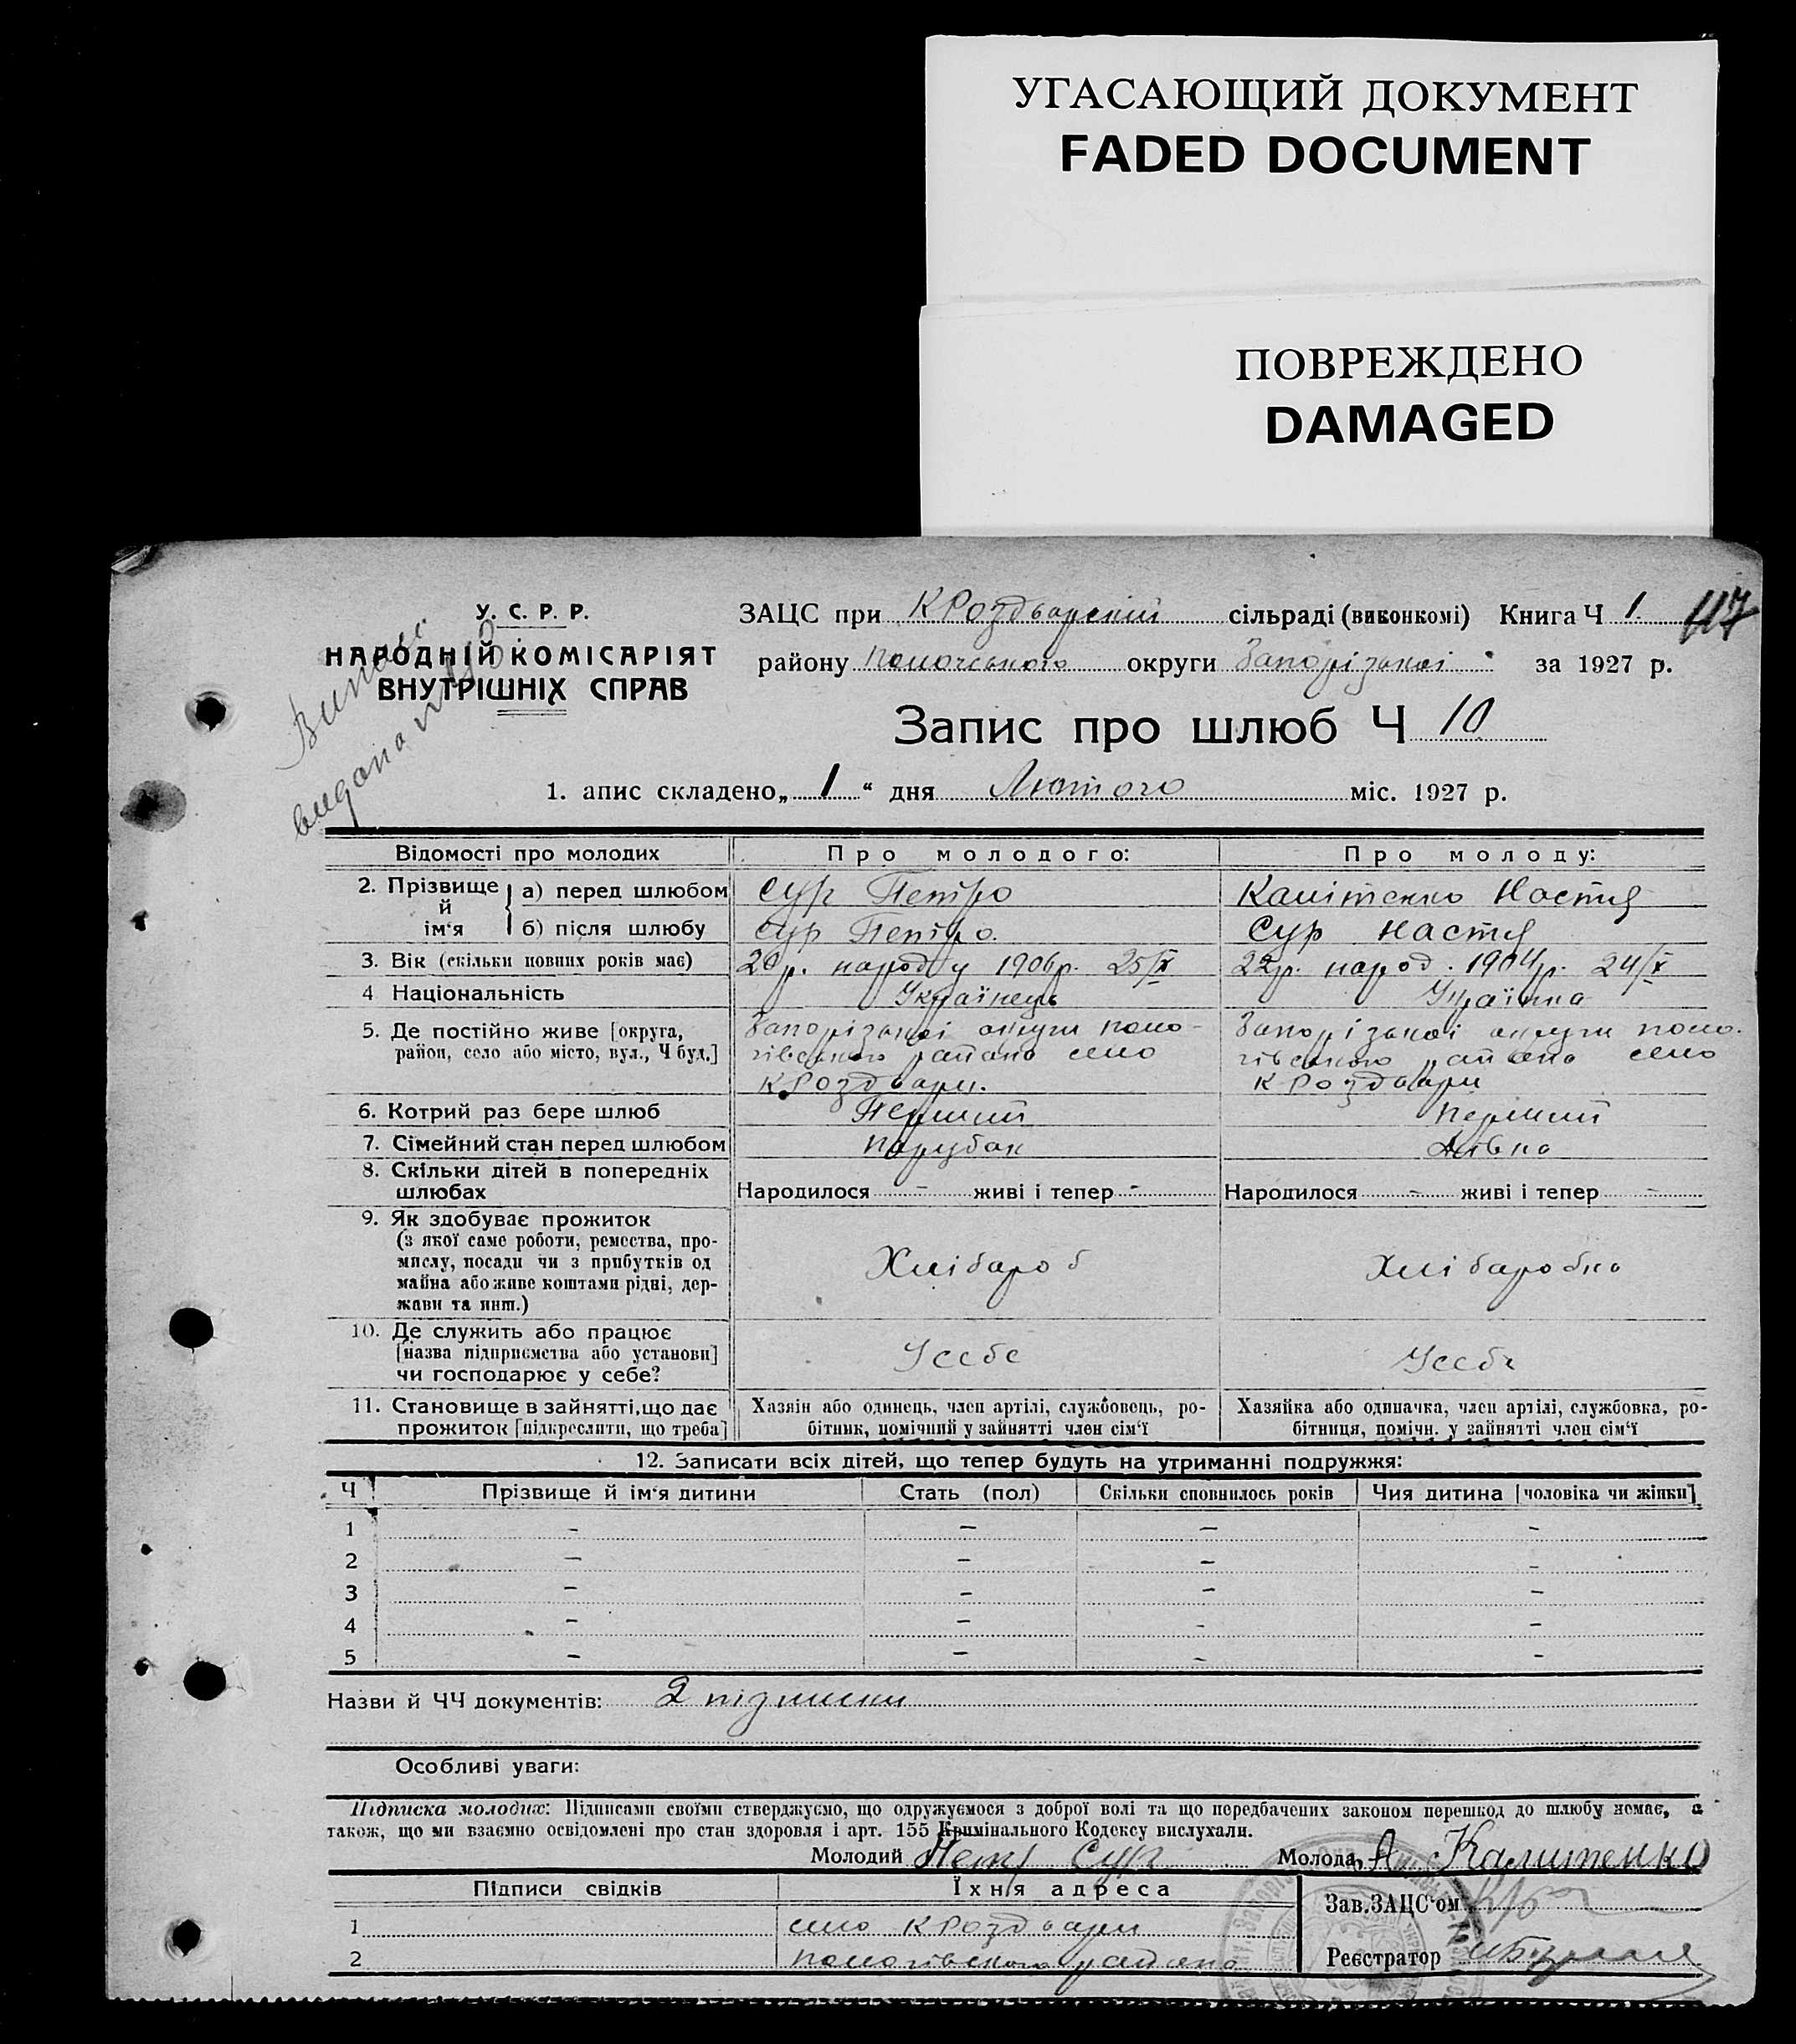 УГАСАЮЩИЙ ДОКУМЕНТ
FADED DOCUMENT
ПОВРЕЖДЕНО
DAMAGED
У. С. Р. Р.
НАРОДНІЙ КОМІСАРІЯТ
ВНУТРІШНІХ СПРАВ
ЗАЦС при КРоздварскій сільраді (виконкомі) Книга Ч 1. 117
району округи Запорізької за 1927 р.
Запис про шлюб Ч 10
1. апис складено „ 1 “ дня Лютого міс. 1927 р.
Відомості про молодих Про молодого: Про молоду:
2. Прізвище й ім‘я а) перед шлюбом Сур Петро Калітенко Настя
б) після шлюбу Сур Петро. Сур Настя
3. Вік (скільки повних років має) 20р. народ у 1906р. 25/X 22р. народ. 1904р. 24/X
4 Національність Українець Українка
5. Де постійно живе [округа, Запорізької округи поло- Запорізької округи поло-
район, село або місто, вул., Ч буд.] гівського района село гівського района село
КРоздвари. КРоздвари
6. Котрий раз бере шлюб Перший перший
7. Сімейний стан перед шлюбом парубак Дівка
8. Скільки дітей в попередніх
шлюбах Народилося - живі і тепер - Народилося - живі і тепер -
9. Як здобуває прожиток
(з якої саме роботи, ремества, про-
мислу, посади чи з прибутків од Хлібароб Хлібаробка
майна або живе коштами рідні, дер-
жави та инш.)
10. Де служить або працює
[назва підприємства або установи] Усебе Усебе
чи господарює у себе?
11. Становище в зайнятті, що дає Хазяїн або одинець, член артілі, службовець, ро- Хазяйка або одиначка, член артілі, службовка, ро-
прожиток [підкреслити, що треба] бітник, помічний у зайнятті член сім‘ї бітниця, помічн. у зайнятті член сім‘ї
12. Записати всіх дітей, що тепер будуть на утриманні подружжя:
Ч Прізвище й ім‘я дитини Стать (пол) Скільки сповнилось років Чия дитина [чоловіка чи жінки]
1 - - - -
2 - - - -
3 - - - -
4 - - - -
5 - - - -
Назви й ЧЧ документів: 2 підписки
Особливі уваги:
Підписка молодих: Підписами своїми стверджуємо, що одружуємося з доброї волі та що передбачених законом перешкод до шлюбу немає, а
також, що ми взаємно освідомлені про стан здоровля і арт. 155 Кримінального Кодексу вислухали.
Молодий Петр Сур Молода А Калитенко
Підписи свідків Їхня адреса
Зав. ЗАЦС‘ом
1 село КРоздвари
2 пологівського района Реєстратор